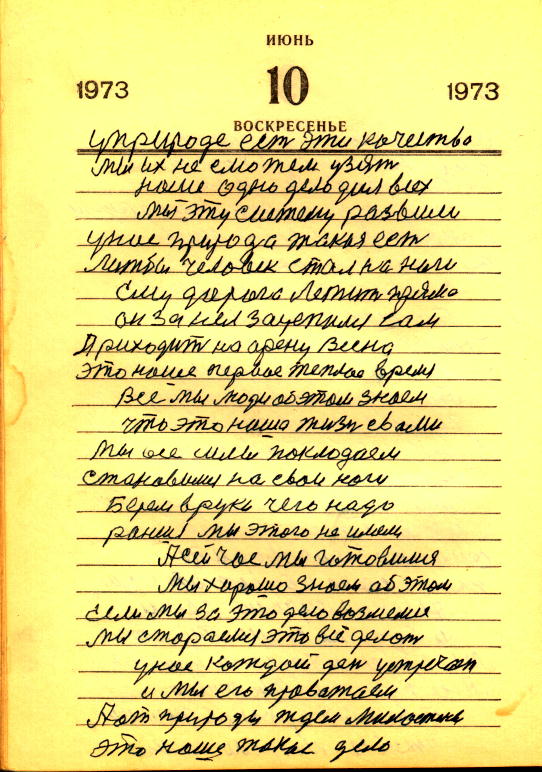 ИЮНЬ
1973 10 1973
ВОСКРЕСЕНЬЕ
уприроде ест эти качества
мы их не сможем узят
наше одно дело для всех
мы эту систему развили
унас природа такая ест
Лишбы человек стал на ноги
Ему дорога лежит прямо
он за нея зацепился сам
Приходит на арену весна
Это наше первое теплое время
Все мы люди об этом знаем
что это наша жизн свами
Мы все силы покладаем
становимся на свои ноги
Берем вруки чего надо
ранше мы этого не имели
Асейчас мы готовимся
Мы хорошо знаем об этом
Если мы за это дело возмемся
Мы стараемся это всё делат
унас каждой ден устречат
и мы его проважаем
Аот природы ждем милостини
Это наше такое дело